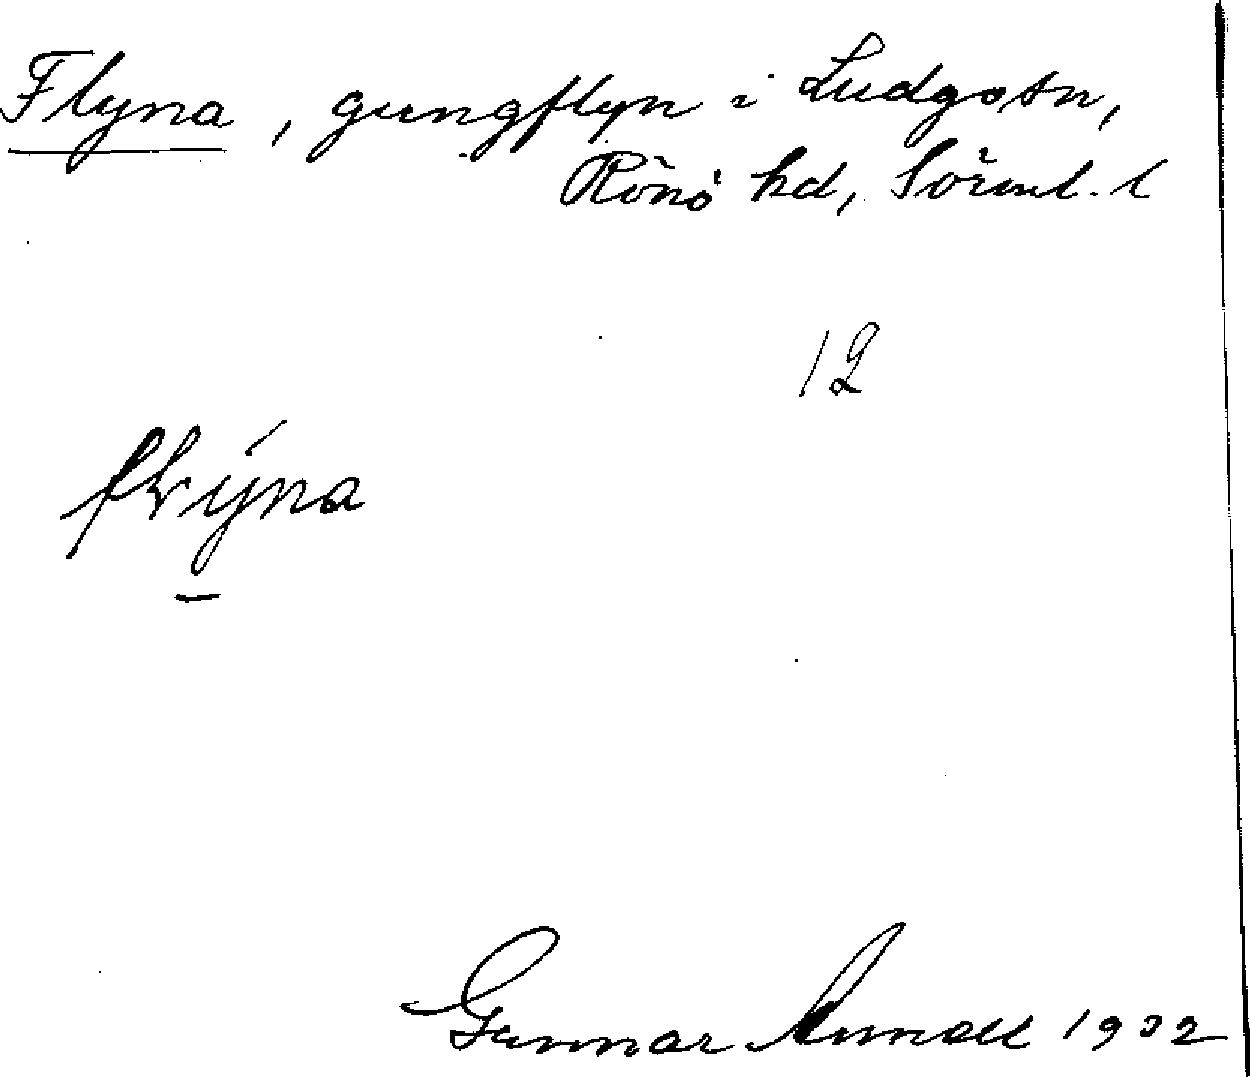 Flyna, gungflyn i Ludgo sn,
Rönö hd, Sörml. l
12
flýna
Gunnar 1932